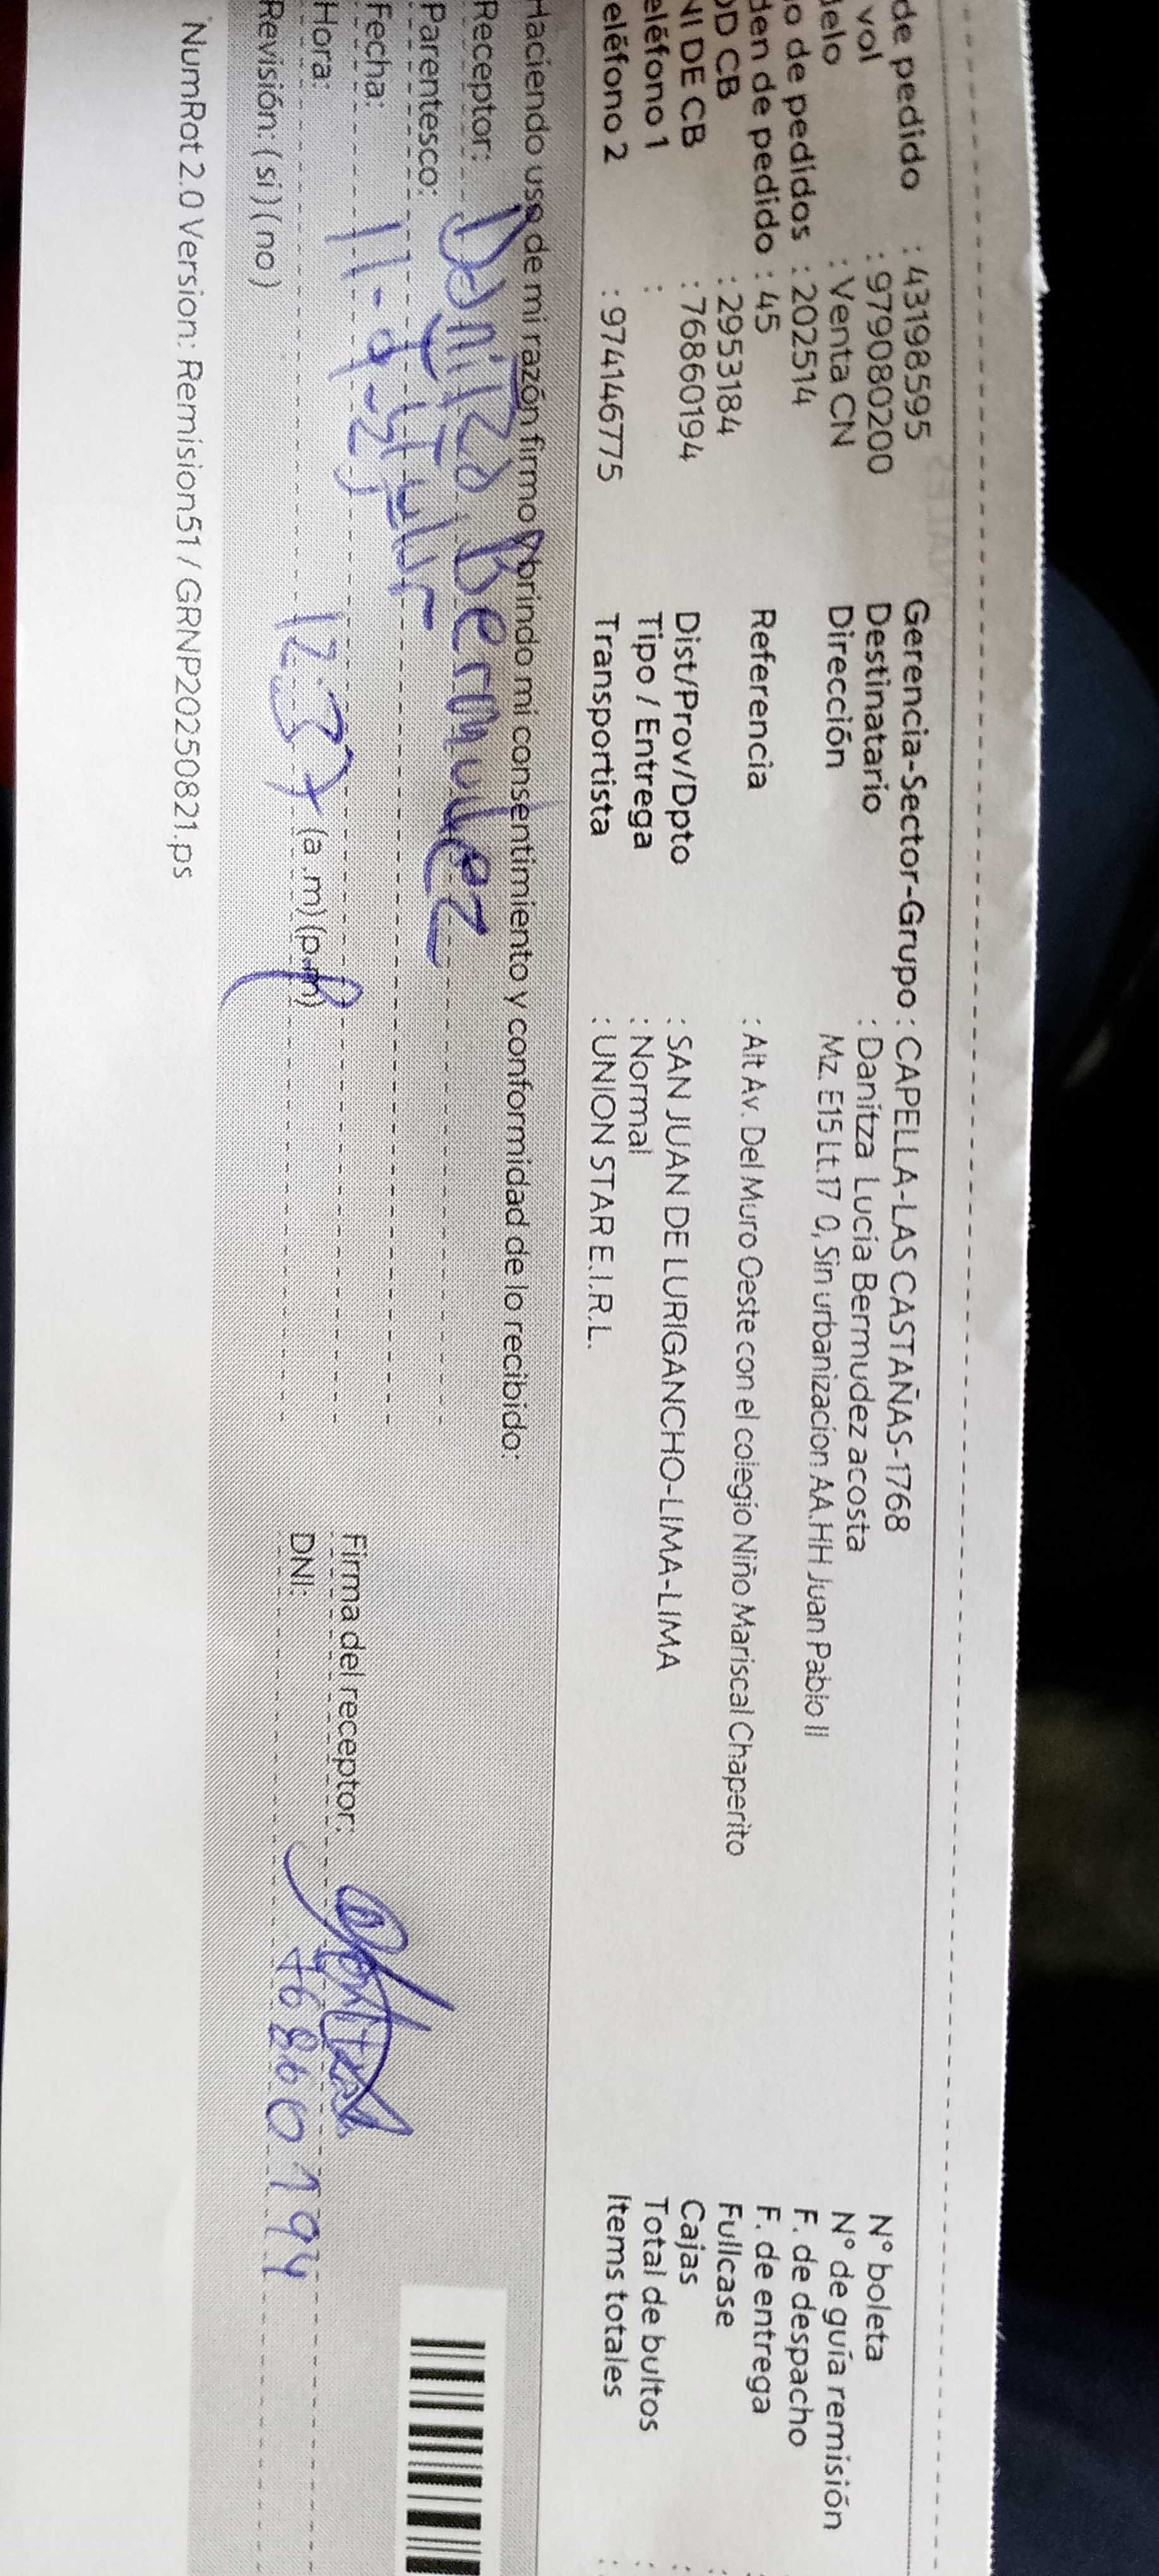 de pedido : 43198595
vol : 979080200
delo : Venta CN
o de pedidos : 202514
den de pedido : 45
OD CB : 2953184
NI DE CB : 76860194
eléfono 1 :
eléfono 2 : 974146775
Gerencia-Sector-Grupo : CAPELLA-LAS CASTAÑAS-1768
Destinatario : Danitza Lucia Bermudez acosta
Dirección Mz. E15 Lt.17 0, Sin urbanizacion AA.HH Juan Pablo II
Referencia : Alt Av. Del Muro Oeste con el colegio Niño Mariscal Chaperito
Dist/Prov/Dpto : SAN JUAN DE LURIGANCHO-LIMA-LIMA
Tipo / Entrega : Normal
Transportista : UNION STAR E.I.R.L.
N° boleta
N° de guía remisión
F. de despacho
F. de entrega
Fullcase
Cajas :
Total de bultos :
Items totales :
Haciendo uso de mi razón firmo y brindo mi consentimiento y conformidad de lo recibido:
Receptor: Danitza Bermudez
Parentesco: Titular
Fecha:
Hora: 12:37 (a.m) (p.m)
Revisión: (si) (no)
Firma del receptor:
DNI: 76860194
NumRot 2.0 Version: Remision51 / GRNP20250821.ps